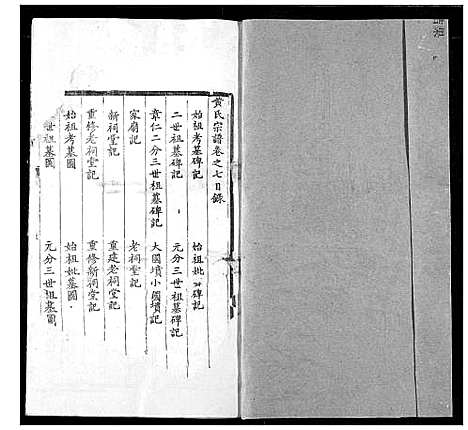 黄氏宗譜卷之七目錄
始祖考墓碑記 始祖妣墓碑記
二世祖墓碑記 元分三世祖墓碑記
章仁二分三世祖墓碑記 大園墳小園墳記
家廟記 老祠堂記
新祠堂記 重建老祠堂記
重修老祠堂記 重修新祠堂記
始祖考墓圖 始祖妣墓圖
世祖墓圖 元分三世祖墓圖